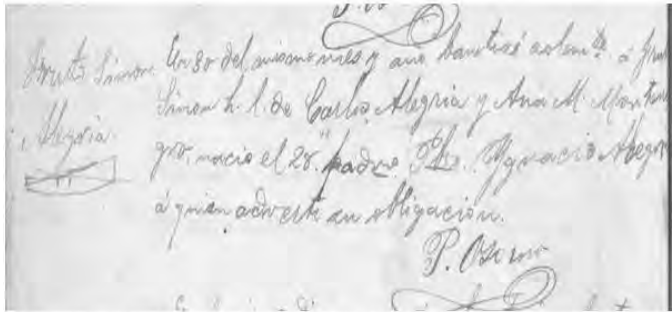 Fruto Simon
Alegria.
En 30 del mismo mes y año bauticé solemte. á Fru
Simon h. l. de Carlos Alegria y Ana M. Monten
gro, nacio el 28. padro Pbo. Ygnacio Alegr
á quien advertí su obligación.
P. Osorno